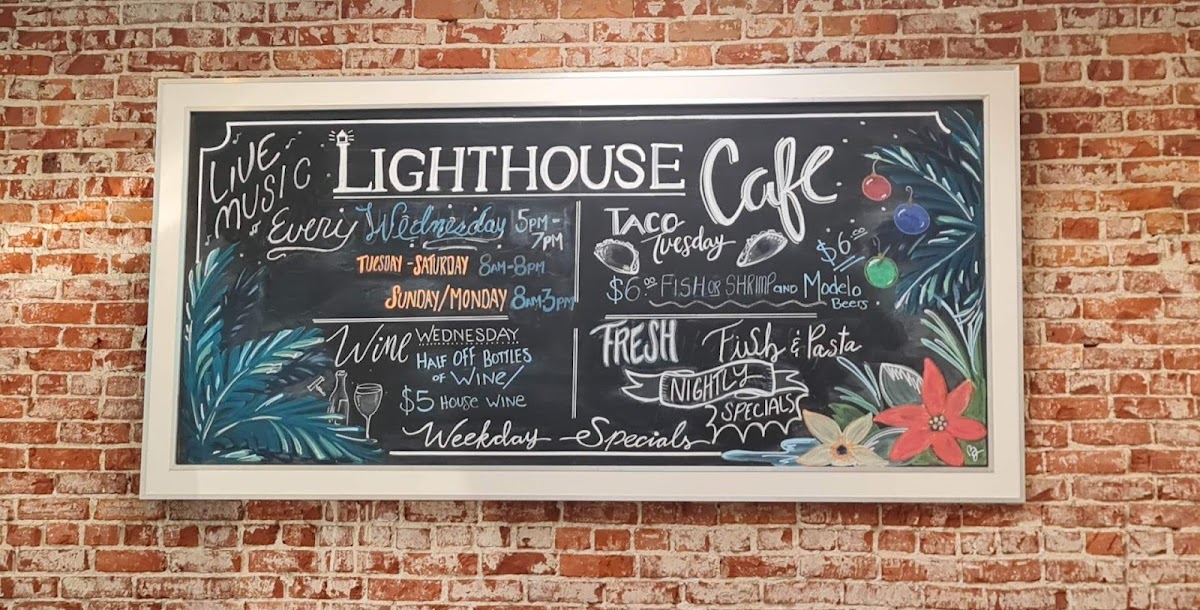 LIVE
MUSIC
Every Wednesday 5PM-
7PM
LIGHTHOUSE Cafe
TUESDAY - SATURDAY 8AM-8PM
SUNDAY/MONDAY 8AM-3PM
TACO
Tuesday
$6.00
$6.00 FISH OR SHRIMP AND Modelo
Beers
Wine WEDNESDAY
HALF OFF BOTTLES
OF WINE/
$5 HOUSE WINE
FRESH Fish & Pasta
NIGHTLY
SPECIALS
Weekday Specials